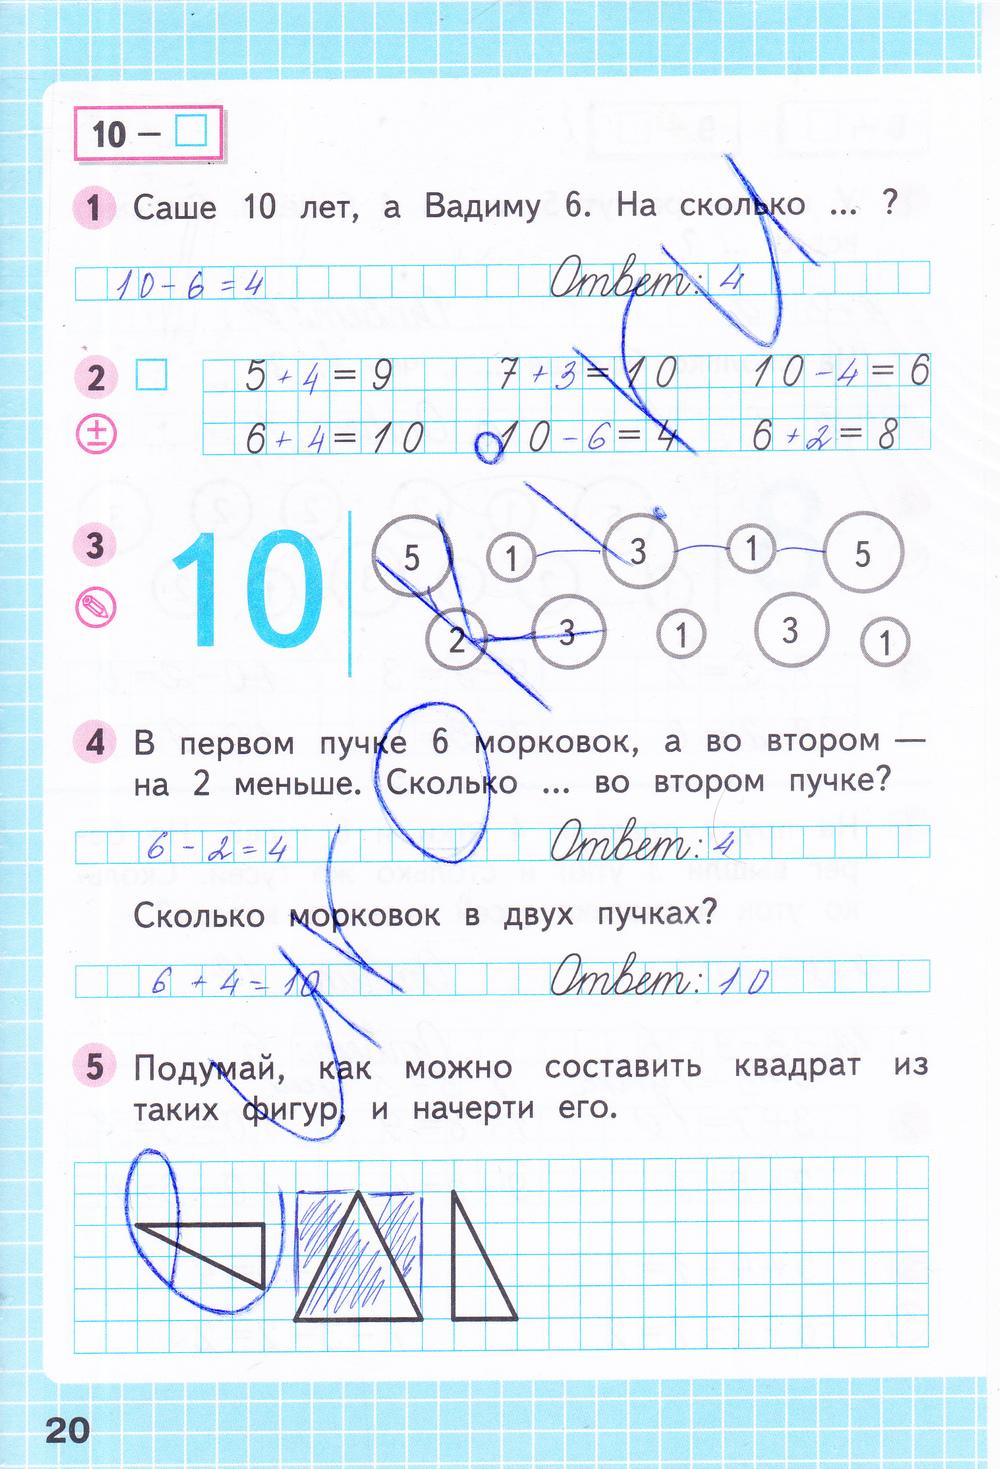 10 – □
1 Саше 10 лет, а Вадиму 6. На сколько ... ?
10 - 6 = 4 Ответ: 4
2 5 + 4 = 9 7 + 3 = 10 10 - 4 = 6
± 6 + 4 = 10 10 - 6 = 4 6 + 2 = 8
3 10 5 1 3 1 5
2 3 1 3 1
4 В первом пучке 6 морковок, а во втором —
на 2 меньше. Сколько ... во втором пучке?
6 - 2 = 4 Ответ: 4
Сколько морковок в двух пучках?
6 + 4 = 10 Ответ: 10
5 Подумай, как можно составить квадрат из
таких фигур, и начерти его.
20